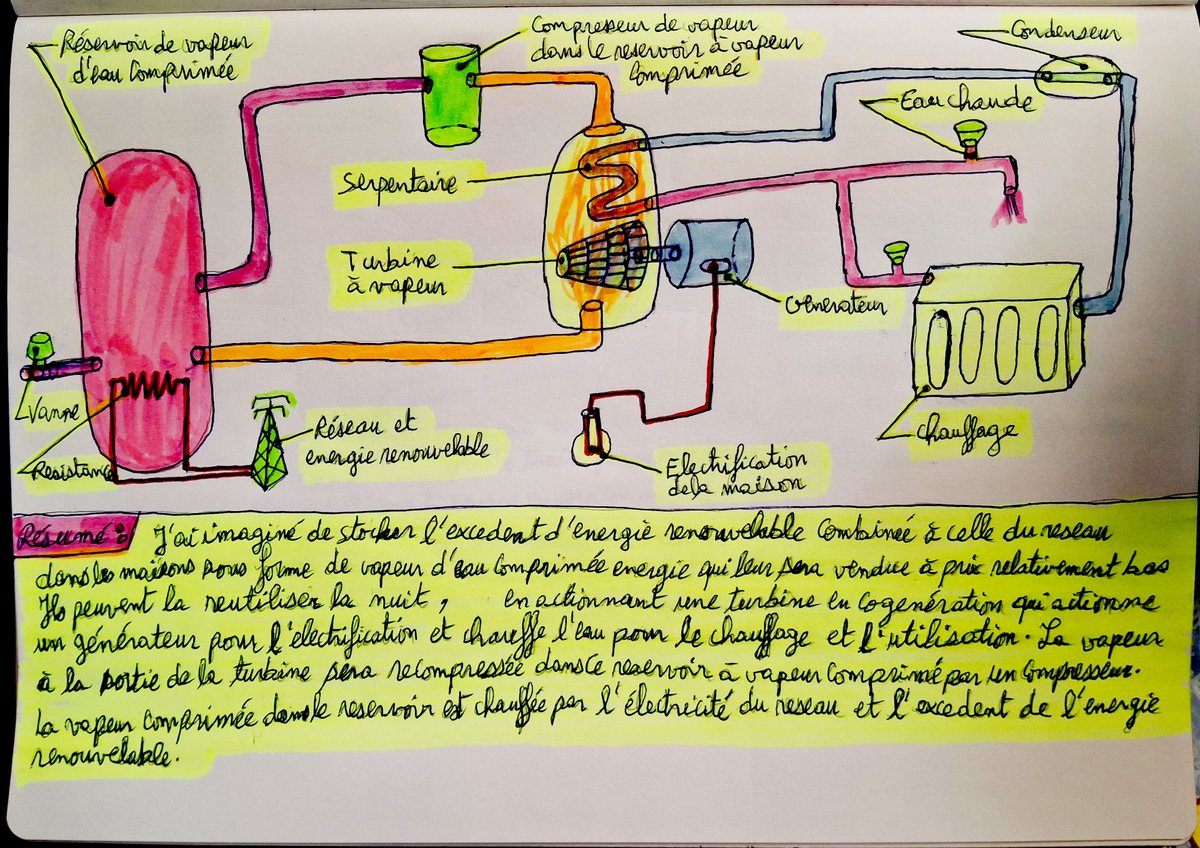 Réservoir de vapeur
d'eau Comprimée
Compresseur de vapeur
dans le reservoir à vapeur
Comprimée
Condenseur
Eau chaude
Serpentaire
Turbine
à vapeur
Génerateur
Vanne
Resistance
Réseau et
energie renouvelable
Electrification
de la maison
chauffage
Résumé : J'ai imaginé de stocker l'excedent d'energie renouvelable Combinée à celle du reseau
dans les maisons sous forme de vapeur d'eau comprimée energie qui leur sera vendue à prix relativement bas
Ils peuvent la reutiliser la nuit, en actionnant une turbine en cogenération qui actionne
un générateur pour l'electrification et chauffe l'eau pour le chauffage et l'utilisation. La vapeur
à la sortie de la turbine sera recompressée dans le reservoir à vapeur Comprimé par un Compresseur.
La vapeur Comprimée dans le reservoir est chauffée par l'électricité du reseau et l'excedent de l'énergie
renouvelable.